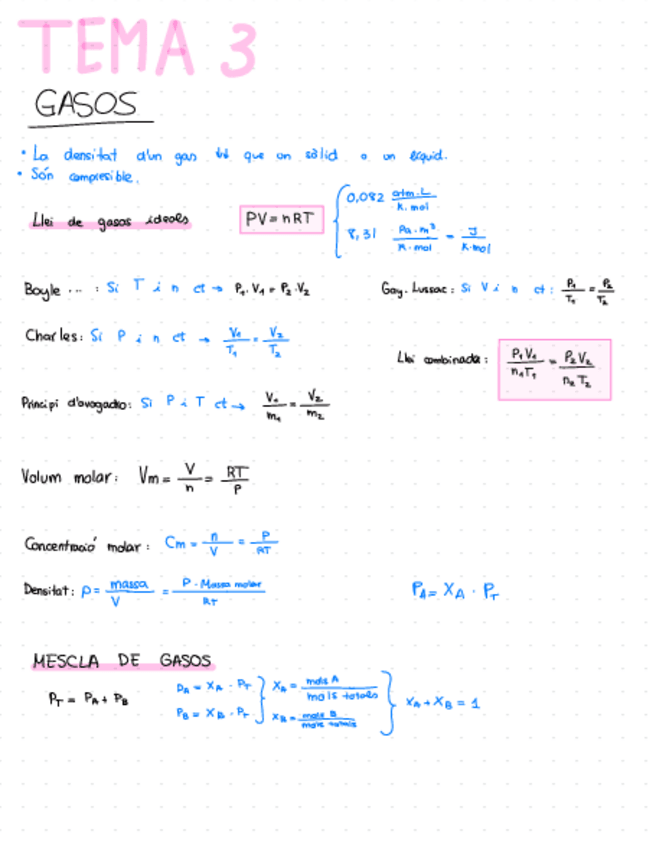 TEMA 3
GASOS
• La densitat d'un gas que un sòlid o un líquid.
• Són compresible.
Llei de gasos ideals PV = nRT { 0,082 atm·L / K·mol
8,31 Pa·m³ / K·mol = J / K·mol
Boyle ... : Si T i n ct → P₁·V₁ = P₂·V₂ Gay. Lussac: Si V i n ct: P₁/T₁ = P₂/T₂
Charles: Si P i n ct → V₁/T₁ = V₂/T₂
Llei combinada: P₁V₁/n₁T₁ = P₂V₂/n₂T₂
Principi d'avogadro: Si P i T ct → V₁/m₁ = V₂/m₂
Volum molar: Vm = V/n = RT/P
Concentració molar: Cm = n/V = P/RT
Densitat: ρ = massa/V = P·Massa molar/RT P_A = X_A · P_T
MESCLA DE GASOS
P_T = P_A + P_B
P_A = X_A · P_T } X_A = mols A / mols totals
P_B = X_B · P_T } X_B = mols B / mols totals } X_A + X_B = 1